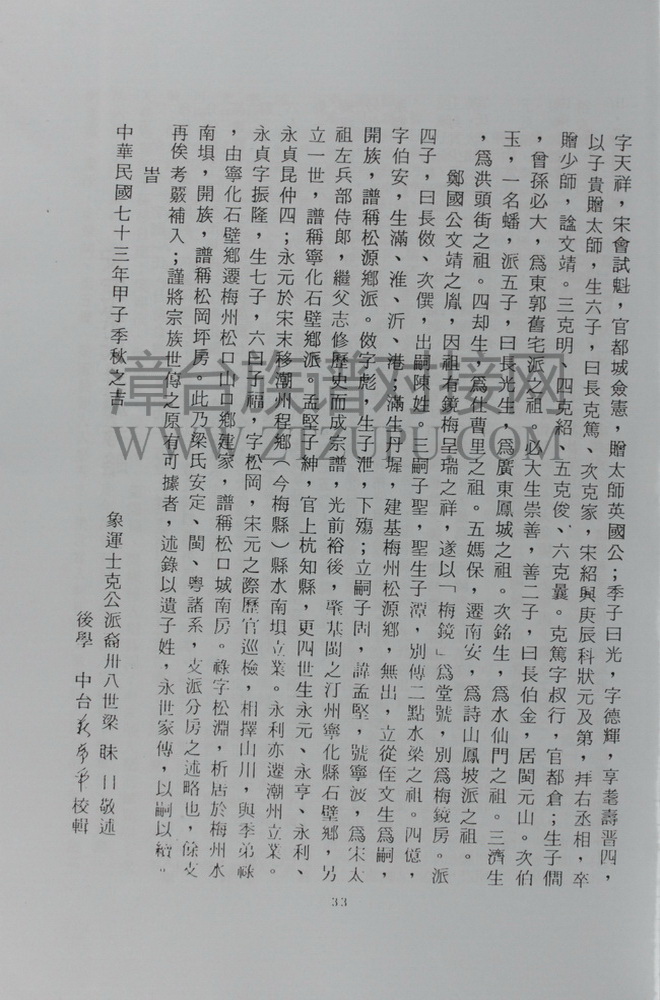 字天祥，宋會試魁，官都城僉憲，贈太師英國公；季子曰光，字德輝，享耄壽晋四，
以子貴贈太師，生六子，曰長克篤、次克家，宋紹興庚辰科狀元及第，拜右丞相，卒
贈少師，諡文靖。三克明、四克紹、五克俊、六克曩。克篤字叔行，官都倉；生子僩
，曾孫必大，爲東郭舊宅派之祖。必大生崇善，善二子，曰長伯金，居閩元山。次伯
玉，一名蟠，派五子，曰長光生，爲廣東鳳城之祖。次銘生，爲水仙門之祖。三濟生
，爲洪頭街之祖。四却生，爲仕曹里之祖。五媽保，遷南安，爲詩山鳳坡派之祖。
鄭國公文靖之胤，因祖有鏡梅呈瑞之祥，遂以「梅鏡」爲堂號，別爲梅鏡房。派
四子，曰長倣、次僎，出嗣陳姓。三嗣子聖，聖生子潭，別傳二點水梁之祖。四億，
字伯安，生滿、淮、沂、港；滿生丹墀，建基梅州松源鄉，無出，立從侄文生爲嗣，
開族，譜稱松源鄉派。倣字彪，生子泄，下殤；立嗣子固，諱孟堅，號寧波，爲宋太
祖左兵部侍郎，繼父志修歷史而成宗譜，光前裕後，肇基閩之汀州寧化縣石壁鄉，另
立一世，譜稱寧化石壁鄉派。孟堅子紳，官上杭知縣，更四世生永元、永亨、永利、
永貞昆仲四；永元於宋末移潮州程鄉（今梅縣）縣水南垻立業。永利亦遷潮州立業。
永貞字振隆，生七子，六曰子福，字松岡，宋元之際歷官巡檢，相擇山川，與季弟祿
，由寧化石壁鄉遷梅州松口山口鄉建家，譜稱松口城南房。祿字松淵，析居於梅州水
南垻，開族，譜稱松岡坪房。此乃梁氏安定、閩、粤諸系，支派分房之述略也，餘支
再俟考覈補入；謹將宗族世傳之原有可據者，述錄以遺子姓，永世家傳，以嗣以續。
旹
中華民國七十三年甲子季秋之吉
象運士克公派裔卅八世梁 眛 日 敬述
後學 中台 校輯
33
漳台族谱对接网
WWW.ZTZUPU.COM